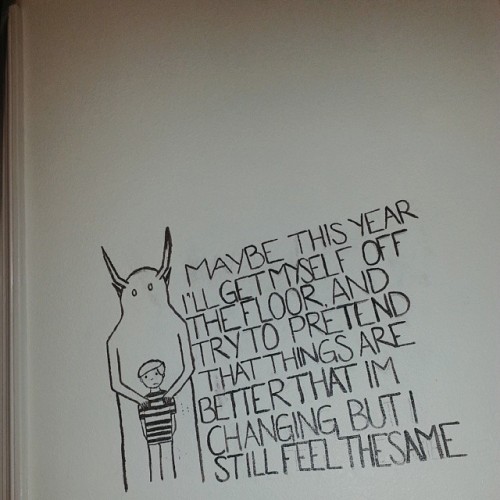 MAYBE THIS YEAR
I'LL GET MYSELF OFF
THE FLOOR, AND
TRY TO PRETEND
THAT THINGS ARE
BETTER THAT IM
CHANGING, BUT I
STILL FEEL THE SAME